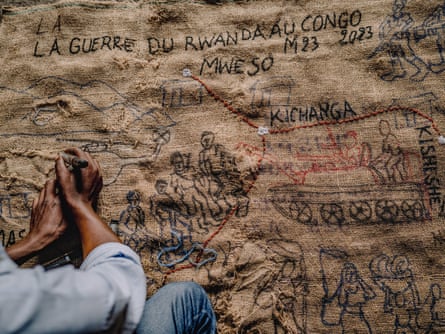 LA
LA GUERRE DU RWANDA AU CONGO
M23 2023
MWESO
KICHANGA
KICHISHE